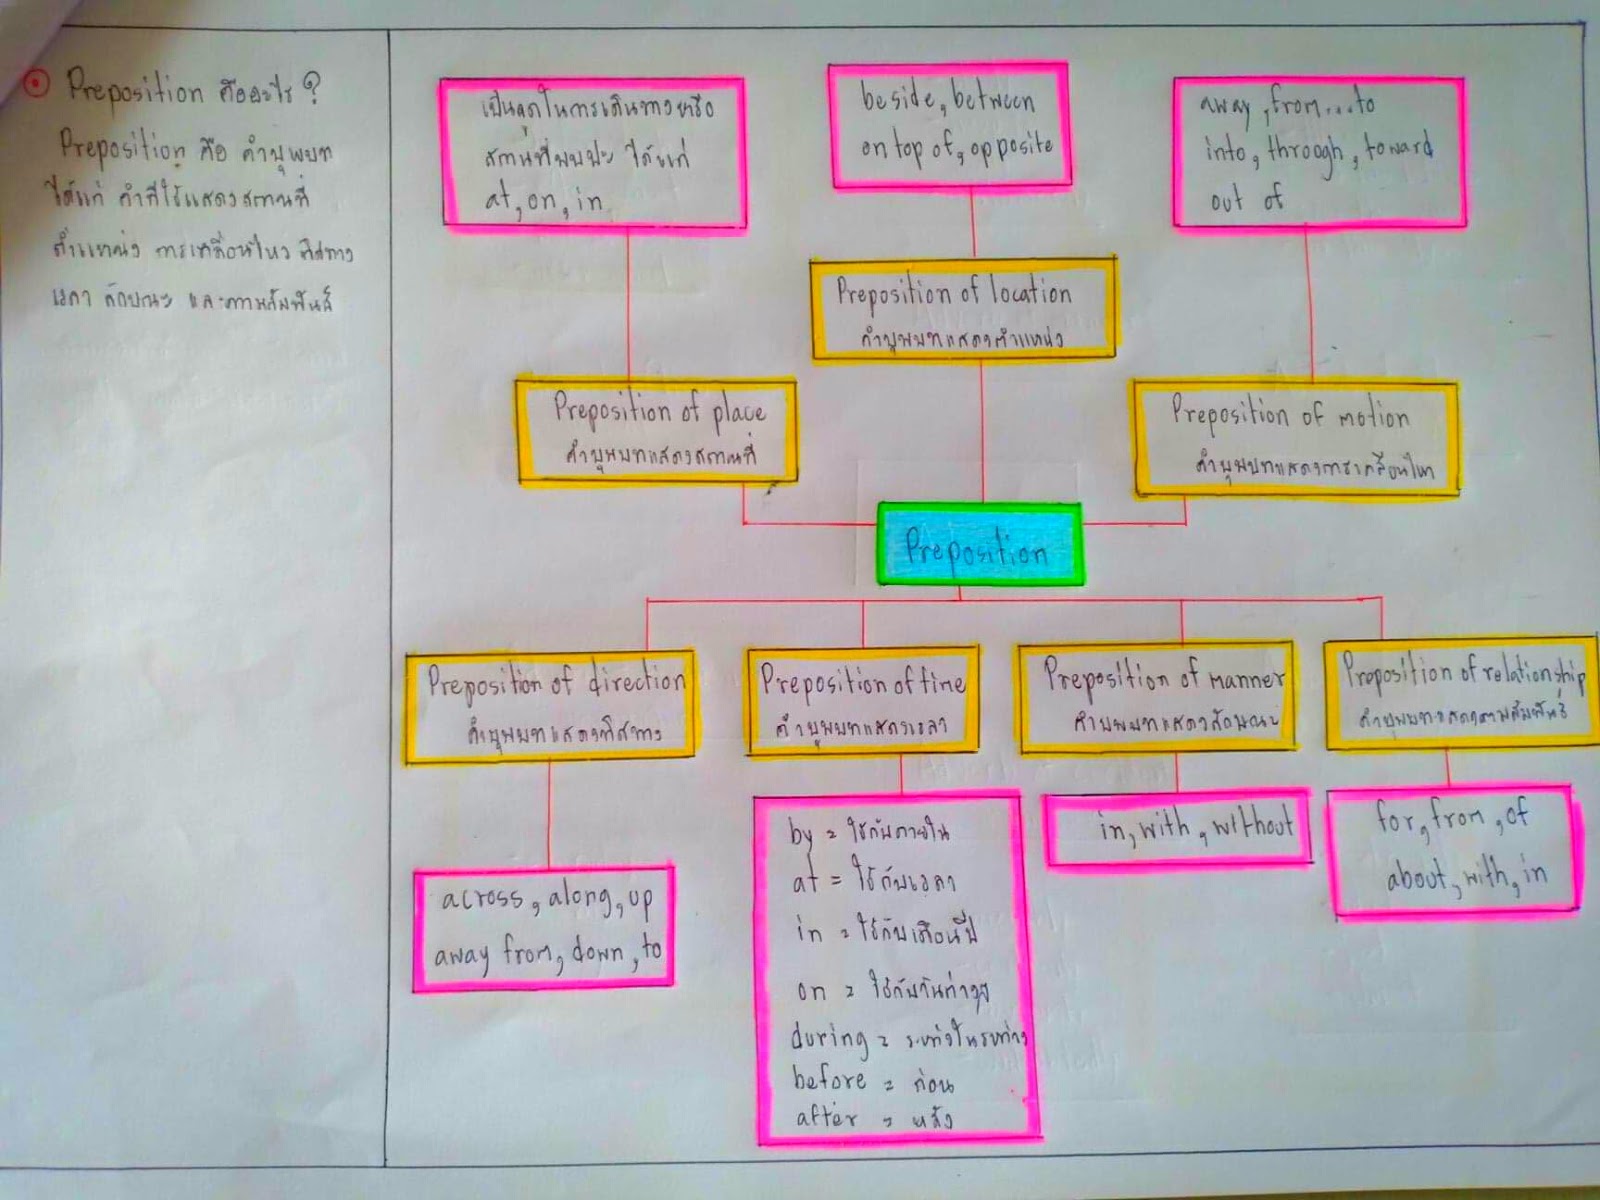 Preposition คืออะไร ?
Preposition คือ คำบุพบท
ได้แก่ คำที่ใช้แสดงสถานที่
ตำแหน่ง การเคลื่อนไหว ทิศทาง
เวลา ลักษณะ และความสัมพันธ์
เป็นจุดในการเดินทางหรือ
สถานที่พบปะ ได้แก่
at, on, in
beside, between
on top of, opposite
away, from...to
into, throogh, toward
out of
Preposition of location
คำบุพบทแสดงตำแหน่ง
Preposition of place
คำบุพบทแสดงสถานที่
Preposition of motion
คำบุพบทแสดงการเคลื่อนไหว
Preposition
Preposition of direction
คำบุพบทแสดงทิศทาง
Preposition of time
คำบุพบทแสดงเวลา
Preposition of manner
คำบุพบทแสดงลักษณะ
Preposition of relationship
คำบุพบทแสดงความสัมพันธ์
across, along, up
away from, down, to
by = ใช้กับภายใน
at = ใช้กับเวลา
in = ใช้กับเดือนปี
on = ใช้กับวันต่างๆ
during = ระหว่าง
before = ก่อน
after = หลัง
in, with, without
for, from, of
about, with, in